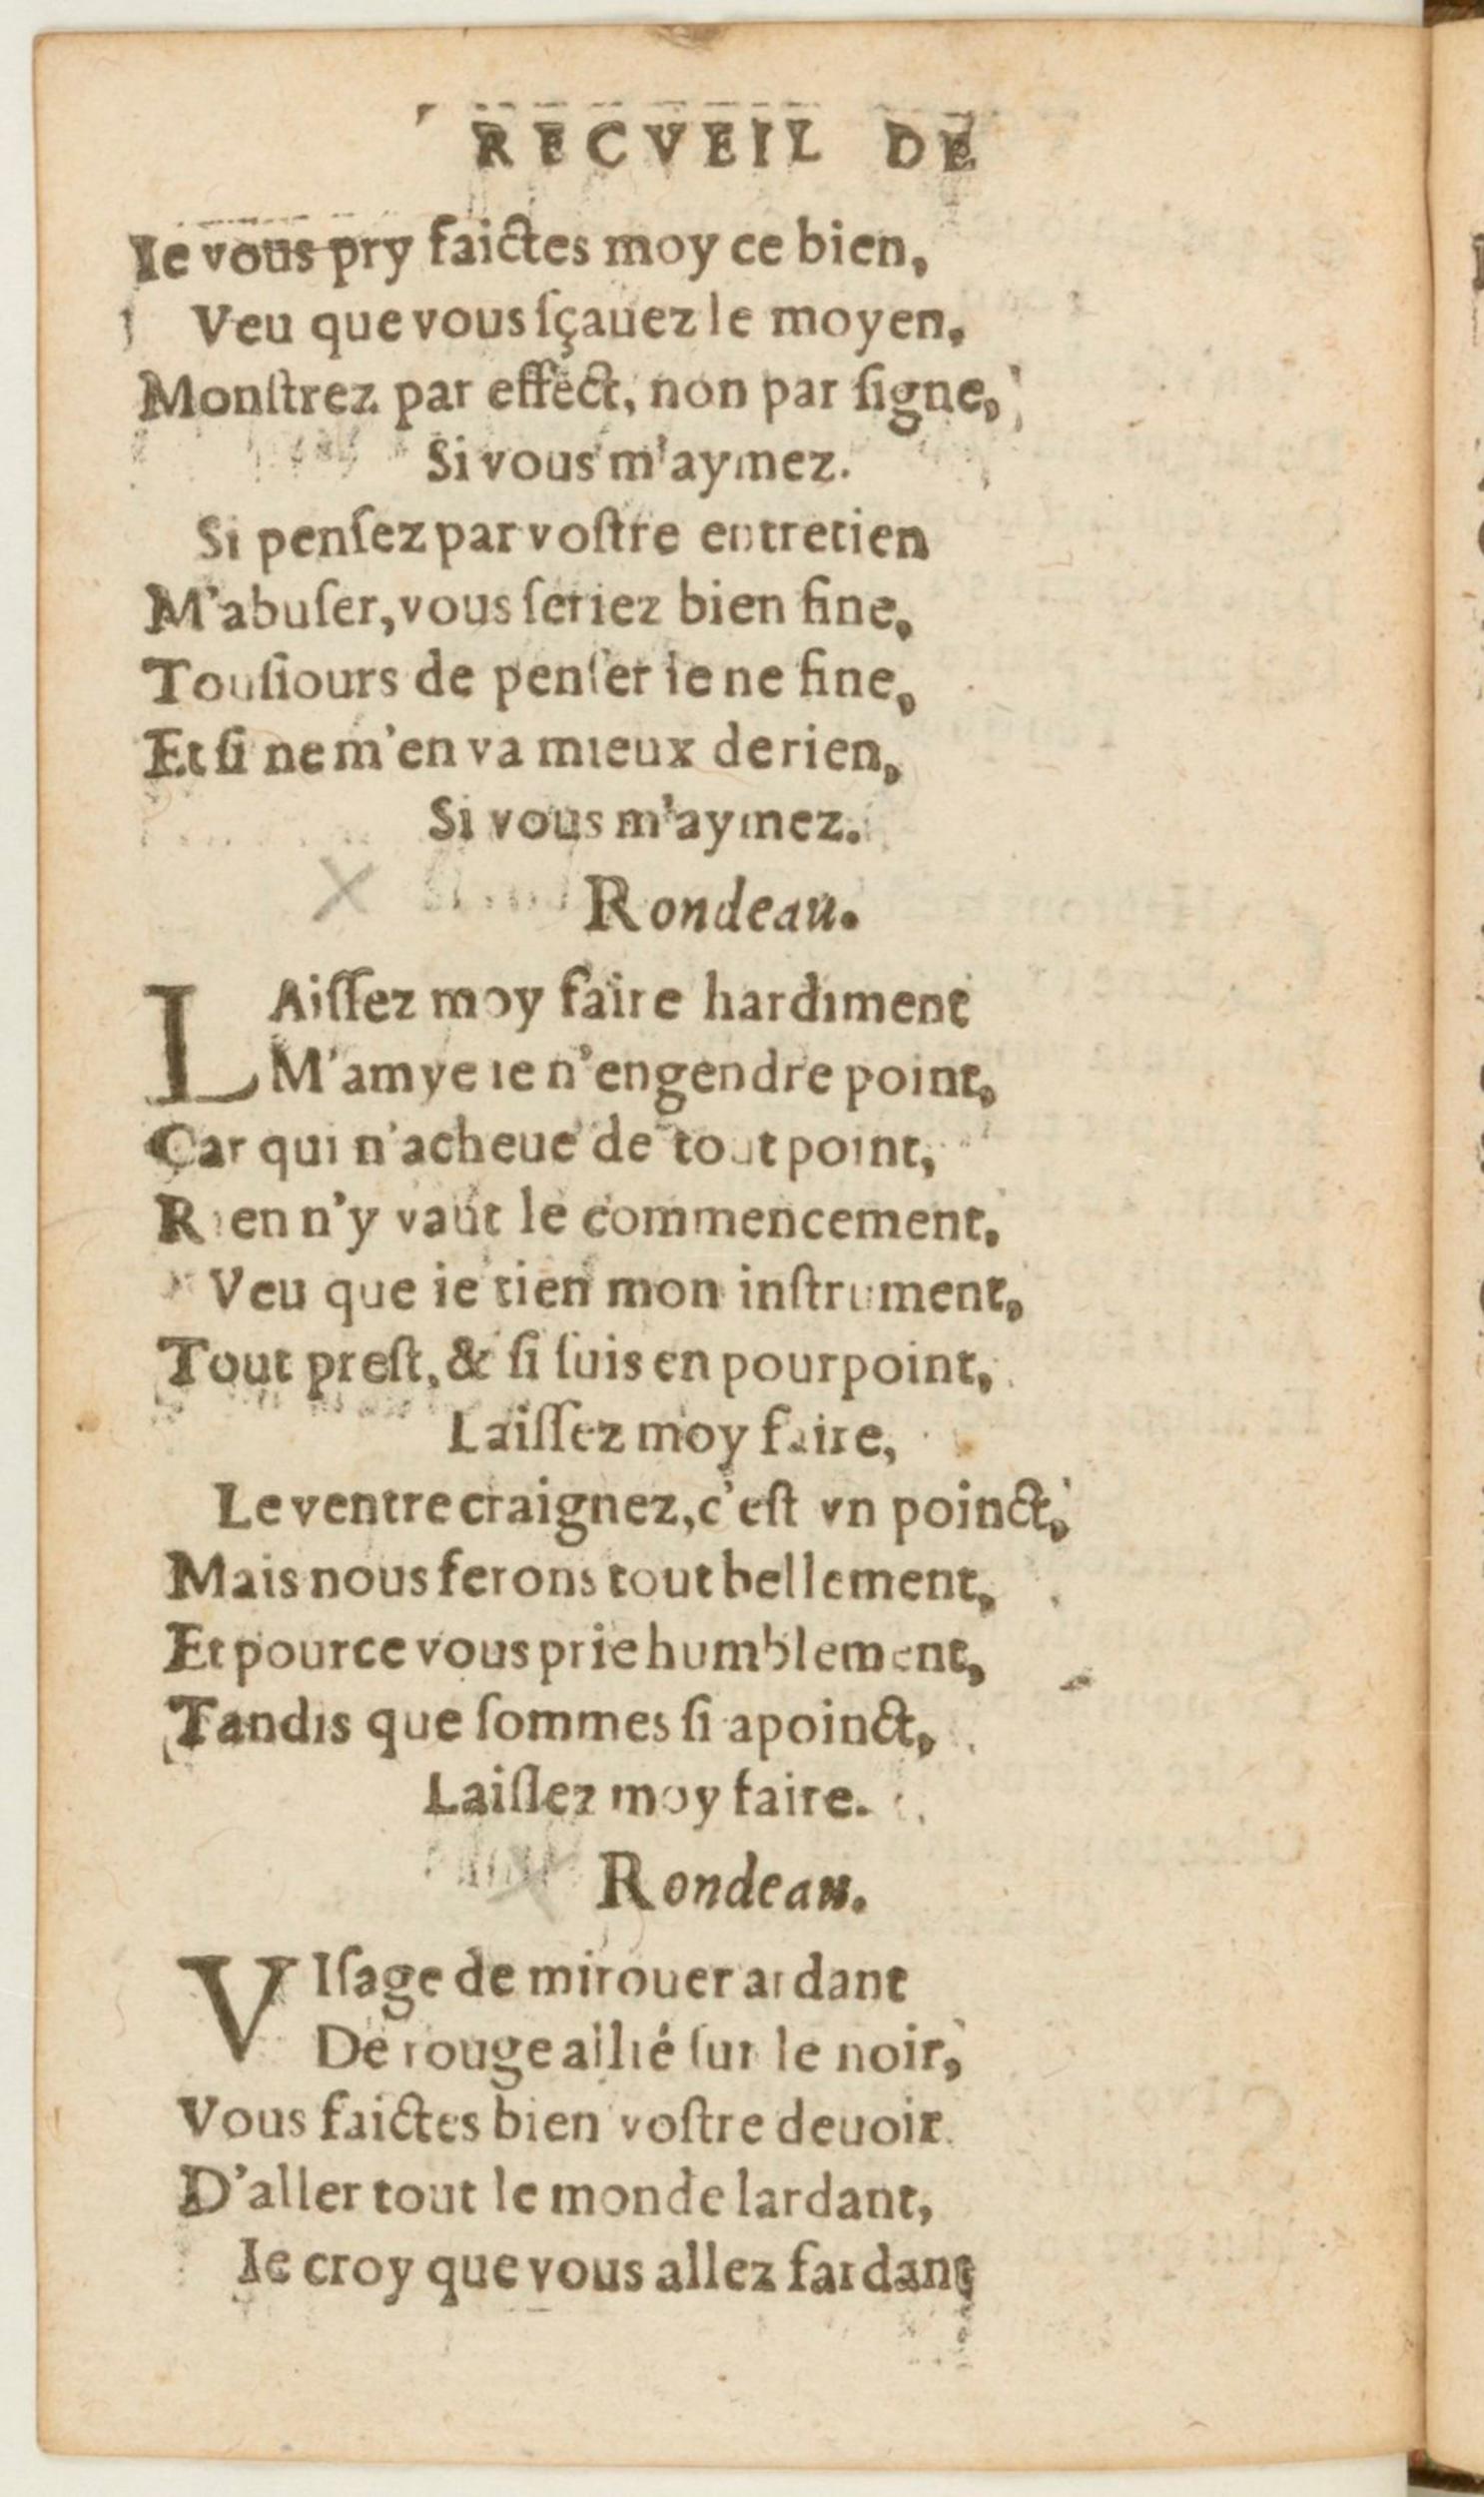 RECVEIL DE
Ie vous pry faictes moy ce bien,
Veu que vous sçauez le moyen,
Monſtrez par effect, non par ſigne,
Si vous m'aymez.
Si penſez par voſtre entretien
M'abuſer, vous ſeriez bien fine,
Touſiours de penſer ie ne fine,
Et ſi ne m'en va mieux de rien,
Si vous m'aymez.
Rondeau.
LAiſſez moy faire hardiment
M'amye ie n'engendre point,
Car qui n'acheue de tout point,
Rien n'y vaut le commencement,
Veu que ie tien mon inſtrument,
Tout preſt, & ſi ſuis en pourpoint,
Laiſſez moy faire,
Le ventre craignez, c'eſt vn poinct,
Mais nous ferons tout bellement,
Et pource vous prie humblement,
Tandis que ſommes ſi apoinct,
Laiſſez moy faire.
Rondeau.
VIſage de mirouer ardant
De rouge allié ſur le noir,
Vous faictes bien voſtre deuoir
D'aller tout le monde lardant,
Ie croy que vous allez fardant